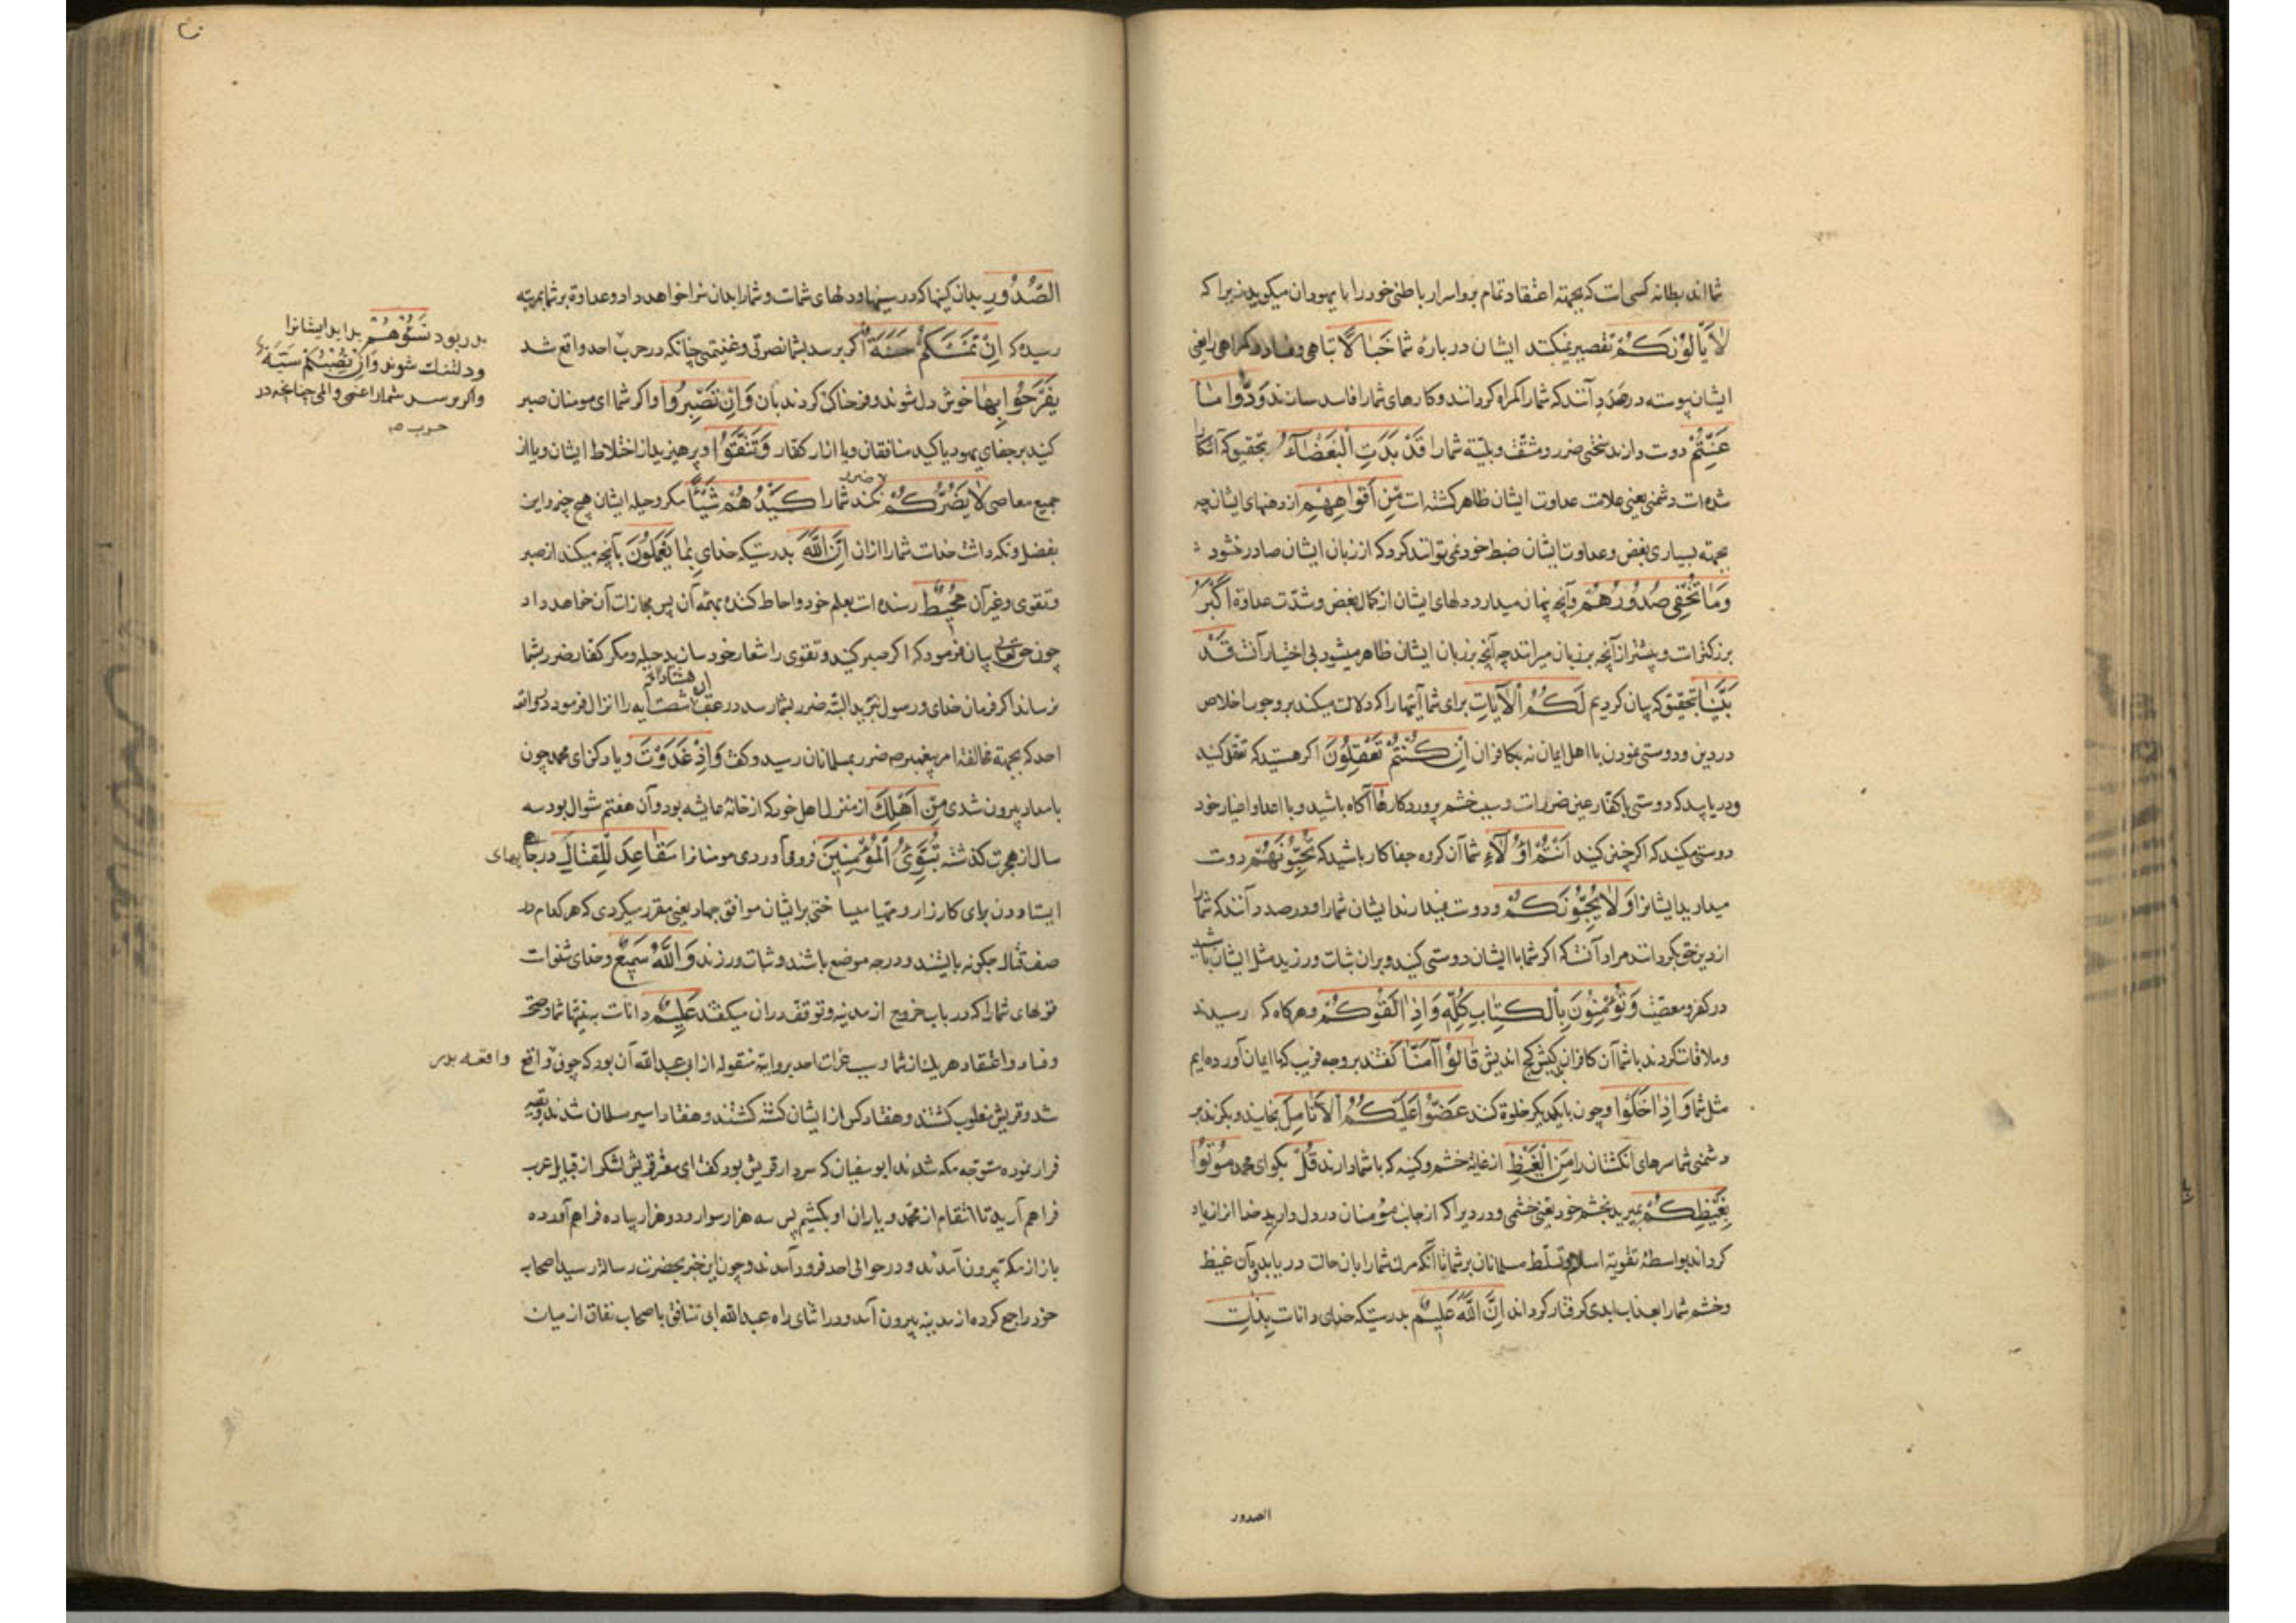 شمااند بطانه کسی است که بجهته اعتقاد تمام برو اسرار باطنی خود را با یهودان میکویید زیرا که
لَا يَأْلُونَكُمْ تقصیر نمیکنند ایشان در بارهٔ شما خَبَالًا تباهی و فساد در کمراهی را یعنی
ایشان پیوسته در صدد آنند که شما را کمراه کردانند و کارهای شما را فاسد سازند وَدُّوا مَا
عَنِتُّمْ دوست دارند سختی ضرر و مشقت و بلیّه شما را قَدْ بَدَتِ الْبَغْضَاءُ بتحقیق که آشکارا
شده است دشمنی یعنی علامت عداوت ایشان ظاهر کشته است مِنْ أَفْوَاهِهِمْ از دهنهای ایشان چه
بجهته بسیاری بغض و عداوت ایشان ضبط خود نمی توانند کرد که از زبان ایشان صادر نشود
وَمَا تُخْفِي صُدُورُهُمْ وآنچه پنهان میدارد دلهای ایشان از کمال بغض و شدّت عداوة أَكْبَرُ
بزرکتر است و بیشتر از آنچه بر زبان میرانند چه آنچه بر زبان ایشان ظاهر میشود بی اختیار آنست قَدْ
بَيَّنَّا بتحقیق که بیان کردیم لَكُمُ الْآيَاتِ برای شما آیتهارا که دلالت میکند بر وجوب اخلاص
در دین و دوستی نمودن با اهل ایمان نه بکافران إِنْ كُنْتُمْ تَعْقِلُونَ اکر هستید که تعقل کنید
ودریابید که دوستی با کفار عین ضرر است و سبب خشم پروردکار ها آکاه باشید و با اعدا و اضیار خود
دوستی میکنید که اکر چنین کنید أَنْتُمْ أُولَاءِ شما آن کروه جفا کار باشید که تُحِبُّونَهُمْ دوست
میدارید ایشانرا وَلَا يُحِبُّونَكُمْ ودوست نمیدارند ایشان شمارا و در صدد آنند که شمارا
از دین حق بکردانند مراد آنست که اکر شما با ایشان دوستی کنید و بران ثبات ورزید مثل ایشان باشید
در کفر و معصیت وَتُؤْمِنُونَ بِالْكِتَابِ كُلِّهِ وَإِذَا لَقُوكُمْ وهرکاه که رسیدند
وملاقات کردند با شما آن کافران کیش کج اندیش قَالُوا آمَنَّا کفتند بر وجه فریب که ما ایمان آورده ایم
مثل شما وَإِذَا خَلَوْا وچون با یکدیکر خلوة کنند عَضُّوا عَلَيْكُمُ الْأَنَامِلَ بخایند و بکزند بر
دشمنی شما سرهای انکشتان را مِنَ الْغَيْظِ از غایة خشم و کینه که با شما دارند قُلْ بکو ای محمد مُوتُوا
بِغَيْظِكُمْ بمیرید بخشم خود یعنی خشمی و دردیرا که از جانب مؤمنان در دل دارید خدا انرا زیاد
کرداند بواسطهٔ تقویة اسلام و تسلّط مسلمانان بر شما تا آنکه مرک شما را بان حالت دریابد و بآن غیظ
وخشم شما را بعذاب ابدی کرفتار کرداند إِنَّ اللَّهَ عَلِيمٌ بدرستیکه خدای داناست بِذَاتِ
الصدور
الصُّدُورِ بدان کینها که در سینها و دلهای شماست و شما را بدان سزا خواهد داد و عداوة بر شما بمرتبه
رسیده که إِنْ تَمْسَسْكُمْ حَسَنَةٌ اکر برسد بشما نصرتی و غنیمتی چنانکه در حرب احد واقع شد
بدر بود تَسُؤْهُمْ بد آید ایشانرا
ودلتنک شوند وَإِنْ تُصِبْكُمْ سَيِّئَةٌ
واکر برسد شمارا غمی و المی چنانچه در
حرب صح
يَفْرَحُوا بِهَا خوش دل شوند و فرحناک کردند بآن وَإِنْ تَصْبِرُوا واکر شما ای مومنان صبر
کنید بر جفای یهود یا کید منافقان و یا ازار کفّار وَتَتَّقُوا وپرهیزید از اختلاط ایشان و یا از
جمیع معاصی لَا يَضُرُّكُمْ ضرر نکند شما را كَيْدُهُمْ شَيْئًا مکر و حیله ایشان هیچ چیز و این
بفضل و نکه داشت خداست شما را از ان إِنَّ اللَّهَ بدرستیکه خدای بِمَا يَعْمَلُونَ بآنچه میکنند از صبر
وتقوی و غیر آن مُحِيطٌ رسنده است بعلم خود و احاطه کننده بهمه آن پس مجازات آن خواهد داد
چون حق تعالی بیان فرمود که اکر صبر کنید و تقوی را شعار خود سازید حیله و مکر کفار ضرر بشما
نرساند و اکر فرمان خدای و رسول نبرید البته ضرر بشما رسد در عقب ان شصت آیه را انزال فرمود در واقعه
احد که بجهته مخالفة امر پیغمبر ص ضرر بمسلمانان رسید و کفت وَإِذْ غَدَوْتَ ویاد کن ای محمد چون
بامداد بیرون شدی مِنْ أَهْلِكَ از منزل اهل خود که از خانهٔ عایشه بود و آن هفتم شوال بود سه
سال از هجرت کذشته تُبَوِّئُ الْمُؤْمِنِينَ فرود می آوردی مومنانرا مَقَاعِدَ لِلْقِتَالِ در جایهای
ایستادن برای کارزار و مهیا میساختی برایشان موافق جهاد یعنی مقرر میکردی که هر کدام در
صف قتال چکونه بایستند و در چه موضع باشند و ثبات ورزند وَاللَّهُ سَمِيعٌ وخدای شنواست
قولهای شمارا که در باب خروج از مدینه و توقف در ان میکفتند عَلِيمٌ داناست به نیتها شما و صحّت
وفساد و اعتقاد هر یک از شما و سبب غزات احد بروایة منقوله از ابی عبد الله آن بود که چون واقعه بدر واقع
شد و قریش مغلوب کشتند و هفتاد کس از ایشان کشته کشتند و هفتاد اسیر مسلمانان شدند و بقیه
فرار نموده متوجه مکه شدند ابو سفیان که سردار قریش بود کفت ای معشر قریش لشکر از قبایل عرب
فراهم آرید تا انتقام از محمد و یاران او بکشیم پس سه هزار سوار و دو هزار پیاده فراهم آورده
باز از مکه بیرون آمدند و در حوالی احد فرود آمدند و چون این خبر بحضرت رسالة رسید اصحاب
خود را جمع کرده از مدینه بیرون آمد و در اثنای راه عبد الله ابی منافق با اصحاب نفاق از میان